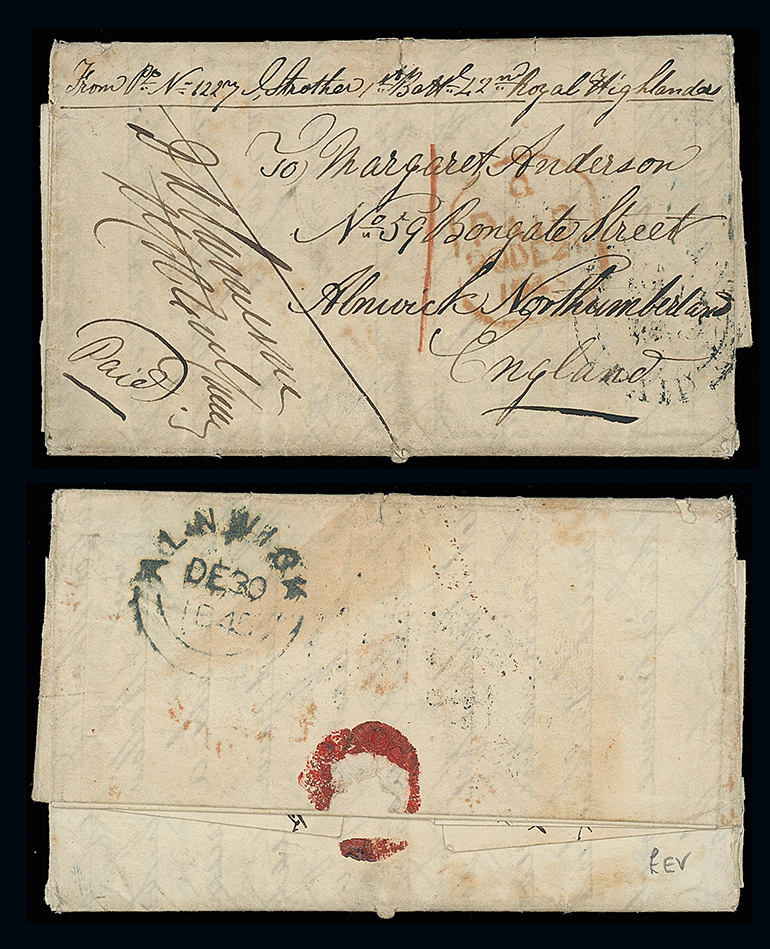 From Pte No 1227 J. Strother, 1st Battn 42nd Royal Highlanders
To Margaret Anderson
No 59 Bongate Street
Alnwick Northumberland
England
Paid
PAID
ALNWICK
DE 30
REV